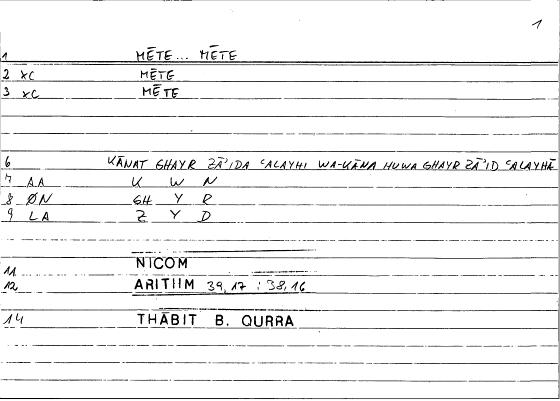 1
1 MĒTE... MĒTE
2 XC MĒTE
3 XC MĒTE
6 KĀNAT GHAYR ZĀʾIDA ʿALAYHI WA-KĀNA HUWA GHAYR ZĀʾID ʿALAYHĀ
7 AA K W N
8 ØN GH Y R
9 LA Z Y D
11 NICOM
12 ARITIIM 39,17 : 38,16
14 THĀBIT B. QURRA